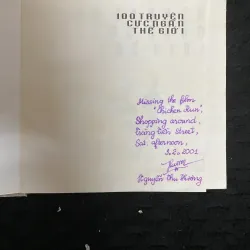 100 TRUYỆN
CỰC NGẮN
THẾ GIỚI
Missing the film
"Chicken Run",
Shopping around,
Tràng Tiền Street,
Sat. afternoon,
3.2.2001
Nguyễn Thu Hương